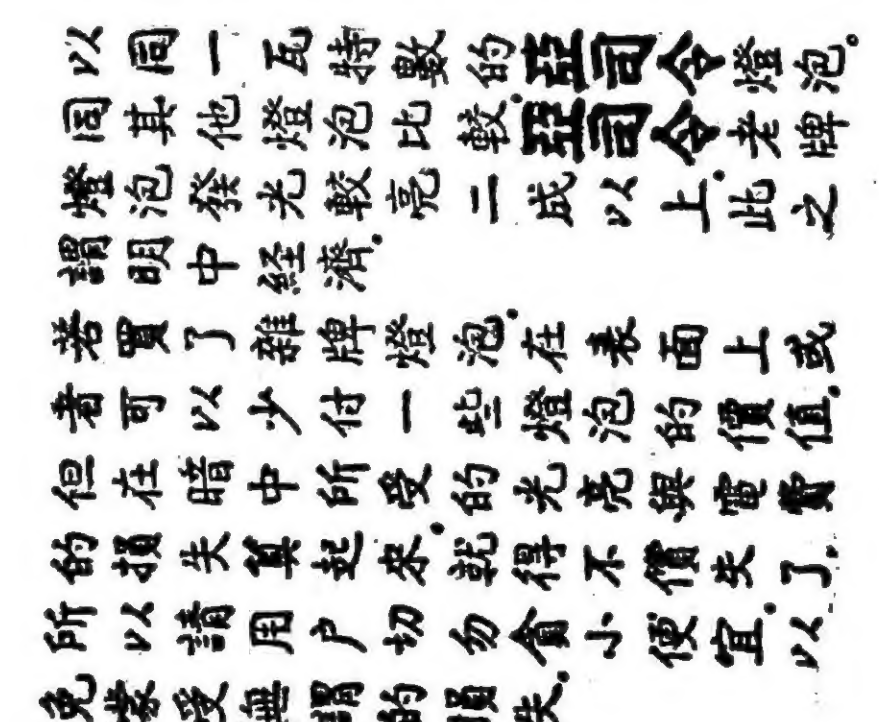 以同一瓦特數的亞司令燈泡。
同其他燈泡比較。亞司令老牌
燈泡發光較亮二成以上。此之
謂明中経濟。
若買了雜牌燈泡。在表面上或
者可以少付一些燈泡的價值。
但在暗中所受的光亮與電費
的損失算起來。就得不償失了。
所以請用户切勿貪小便宜。以
免蒙受無謂的損失。